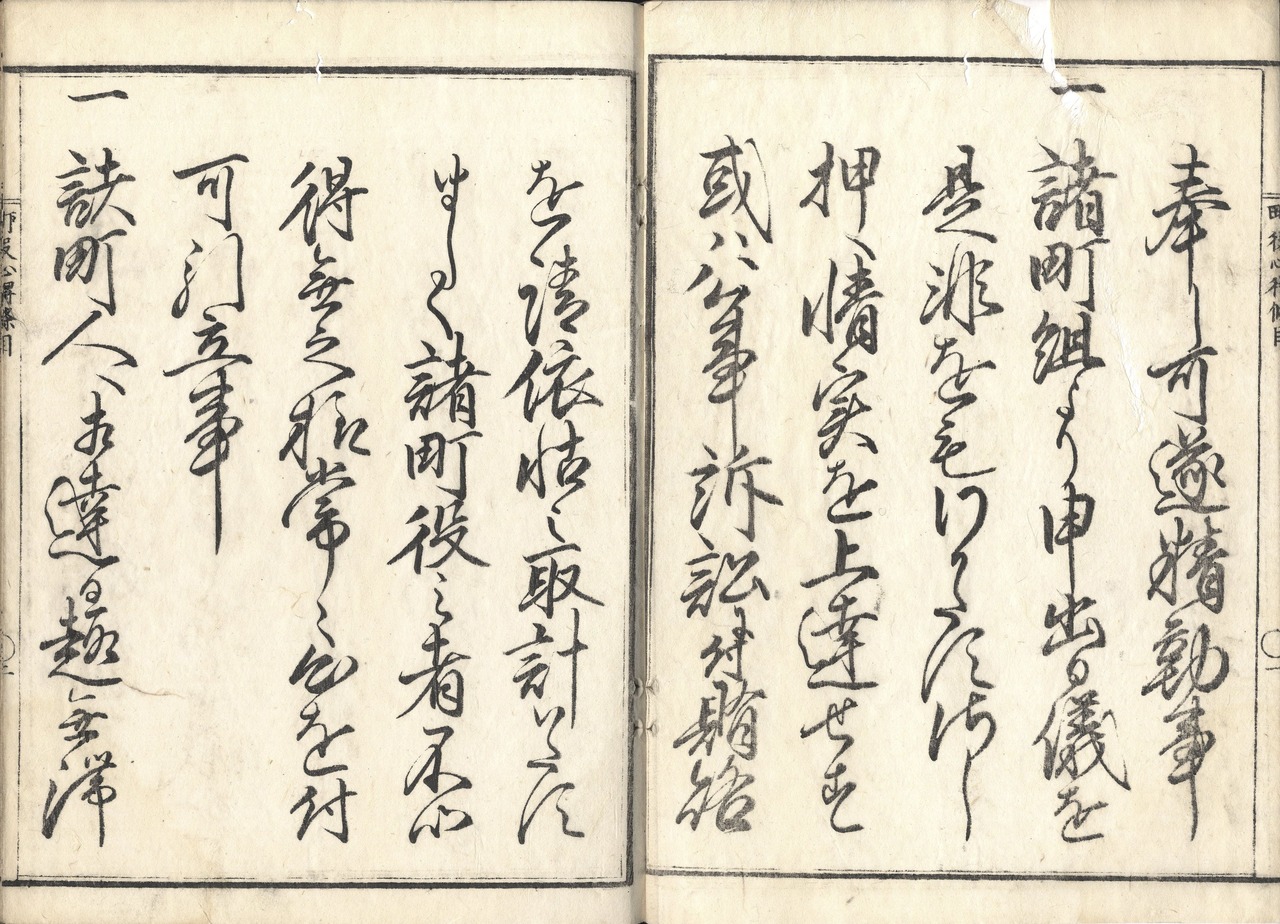 奉し可遂精勤事
一 諸町組より申出る儀を
是非を毛わかたす
押へ情実を上達せす
或ハ公事訴訟ニ付賄賂
を請依怙之取計いたす
ましく諸町役之者不心
得無之様常々心を付
可引立事
一 諸町人へ相達る趣無滞
町役心得条目